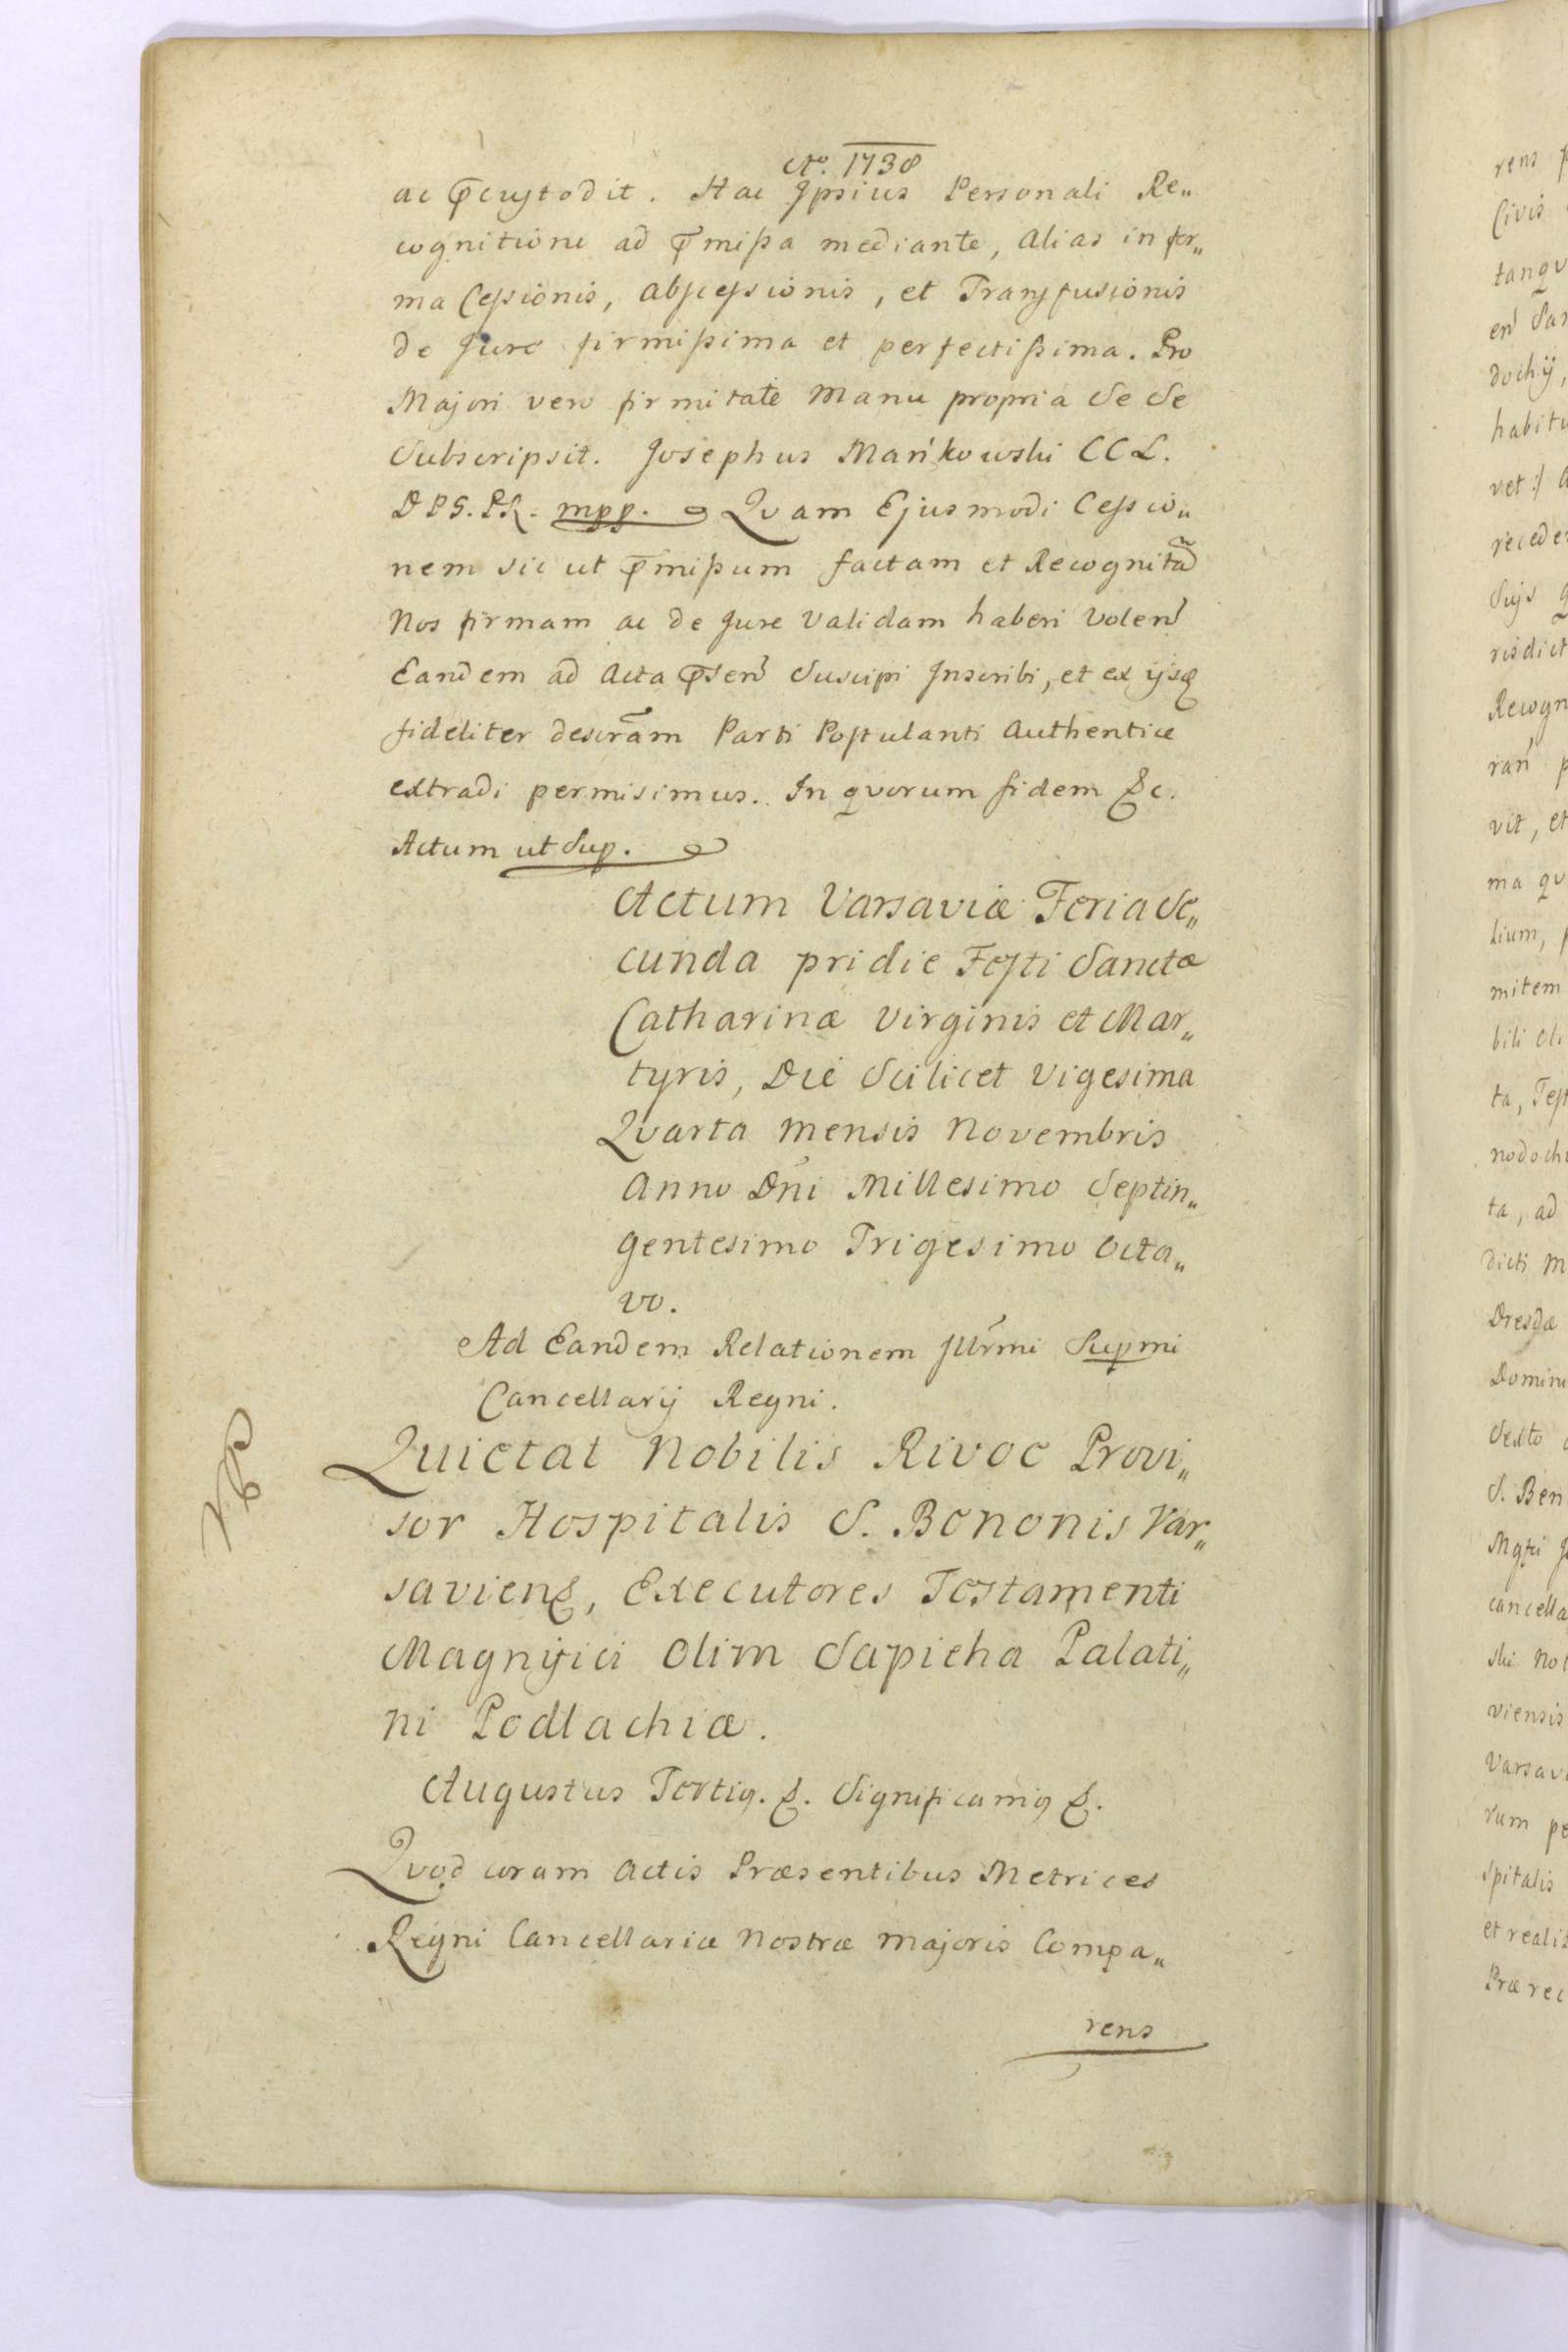 Ao. 1738
ac p̄custodit. Hac Ipsius Personali Re„
cognitione ad p̄missa mediante, alias in for„
ma Cessionis, abscessionis, et Transfusionis
de Jure firmissima et perfectissima. Pro
Majori vero firmitate Manu propria Se Se
Subscripsit. Josephus Mańkowski CCL.
DPS.PR. mpp. Qvam Ejusmodi Cessio„
nem sic ut p̄missum factam et Recognitã
Nos firmam ac de Jure Validam haberi Volen̄
Eandem ad Acta p̄sen̄ Suscipi Inscribi, et ex ijsq
fideliter descr̄am Parti Postulanti Authentice
extradi permisimus. In qvorum fidem &c.
Actum ut Sup.
Actum Varsaviæ Feria Se„
cunda pridie Festi Sanctæ
Catharinæ Virginis et Mar„
tyris, Die Scilicet Vigesima
Qvarta Mensis Novembris
Anno Dńi Millesimo Septin„
gentesimo Trigesimo Octa„
vo.
Ad Eandem Relationem Illr̄mi Supmi
Cancellarij Regni.
Quietat Nobilis Rivoc Provi„
sor Hospitalis S. Bononis Var„
saviens, Executores Testamenti
Magnifici Olim Sapieha Palati„
ni Podlachiæ.
Augustus Tertiq. &. Significamq &.
Qvod coram Actis Præsentibus Metrices
Regni Cancellariæ Nostræ Majoris Compa„
rens
rens
Civis
tanqv
dochij,
habitu
vet:/
recede
risdict
Recogn
vit, et
ma qv
lium,
mitem
bili
ta, Test
nodochi
ta, ad
dicti M
Dresdæ
Domini
Sexto
S. Ben
cancella
ski Not
viensis
Varsavi
rum pe
spitalis
et realis
Præ rec